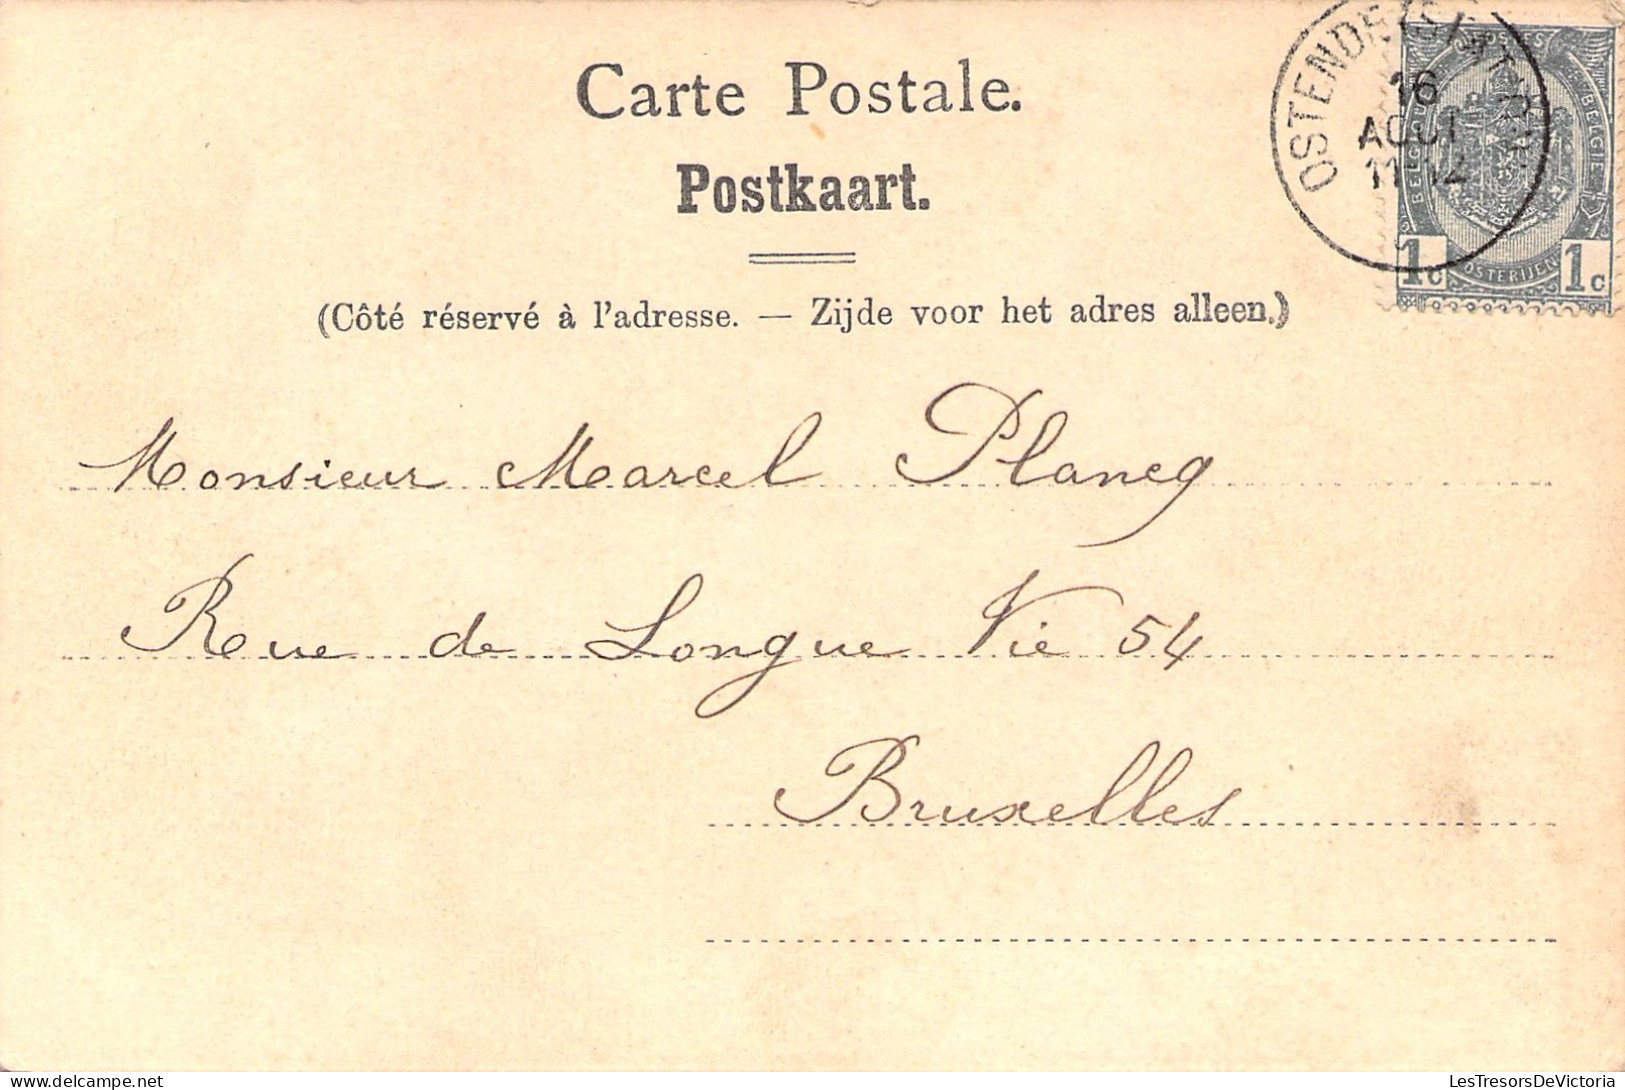 Carte Postale.
Postkaart.
(Côté réservé à l'adresse. — Zijde voor het adres alleen.)
OSTENDE (STATION)
16
AOUT
11-12
POSTES
BELGIQUE
BELGIË
POSTERIJEN
1c 1c
Monsieur Marcel Plancq
Rue de Longue Vie 54
Bruxelles
LesTresorsDeVictoria
https://www.delcampe.net